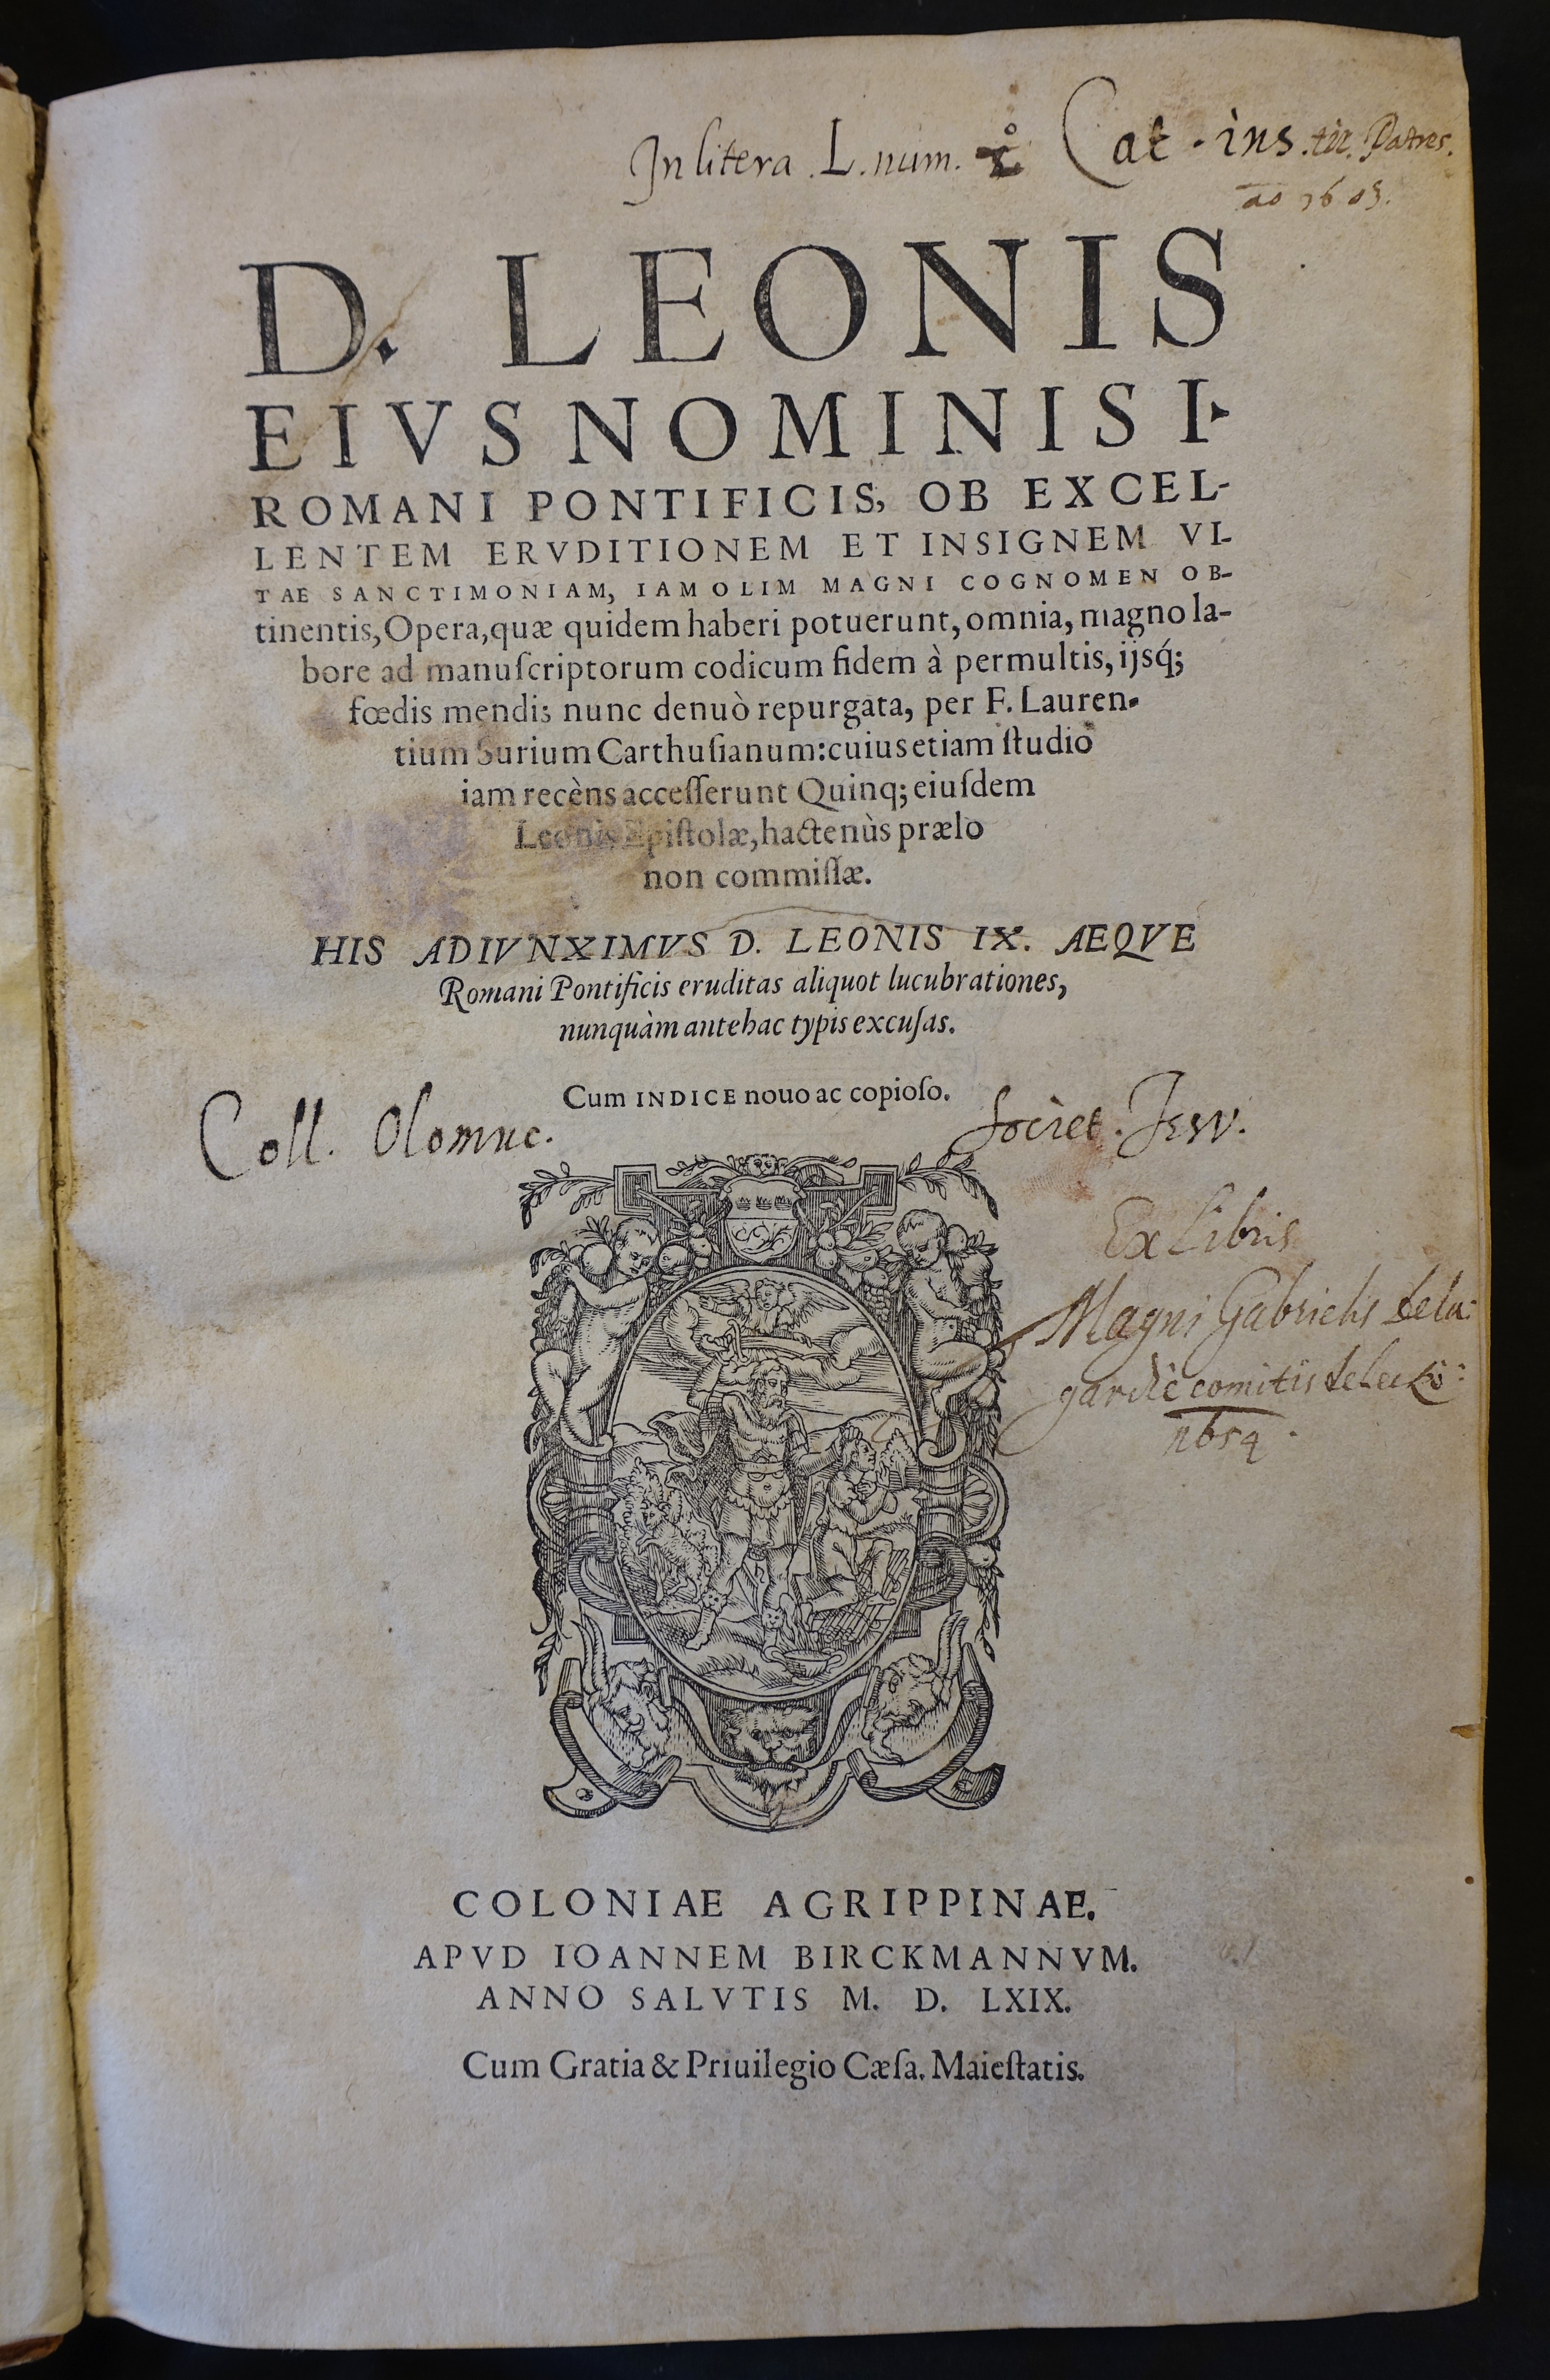 In litera .L. num. Cat. ins.tit. Patres.
ao 1603.
D. LEONIS
EIVS NOMINIS I.
ROMANI PONTIFICIS, OB EXCEL-
LENTEM ERVDITIONEM ET INSIGNEM VI-
TAE SANCTIMONIAM, IAM OLIM MAGNI COGNOMEN OB-
tinentis, Opera, quæ quidem haberi potuerunt, omnia, magno la-
bore ad manuſcriptorum codicum fidem à permultis, ijsq́;
fœdis mendis nunc denuò repurgata, per F. Lauren-
tium Surium Carthuſianum: cuius etiam ſtudio
iam recèns acceſſerunt Quinq; eiuſdem
Leonis Epiſtolæ, hactenùs prælo
non commiſſæ.
HIS ADIVNXIMVS D. LEONIS IX. AEQVE
Romani Pontificis eruditas aliquot lucubrationes,
nunquàm antehac typis excuſas.
Cum INDICE nouo ac copioſo.
Coll. Olomuc. Societ. Jesv.
Ex Libris
Magni Gabrielis dela:
gardie comitis de Leckö:
1654.
COLONIAE AGRIPPINAE.
APVD IOANNEM BIRCKMANNVM.
ANNO SALVTIS M. D. LXIX.
Cum Gratia & Priuilegio Cæſa. Maieſtatis.